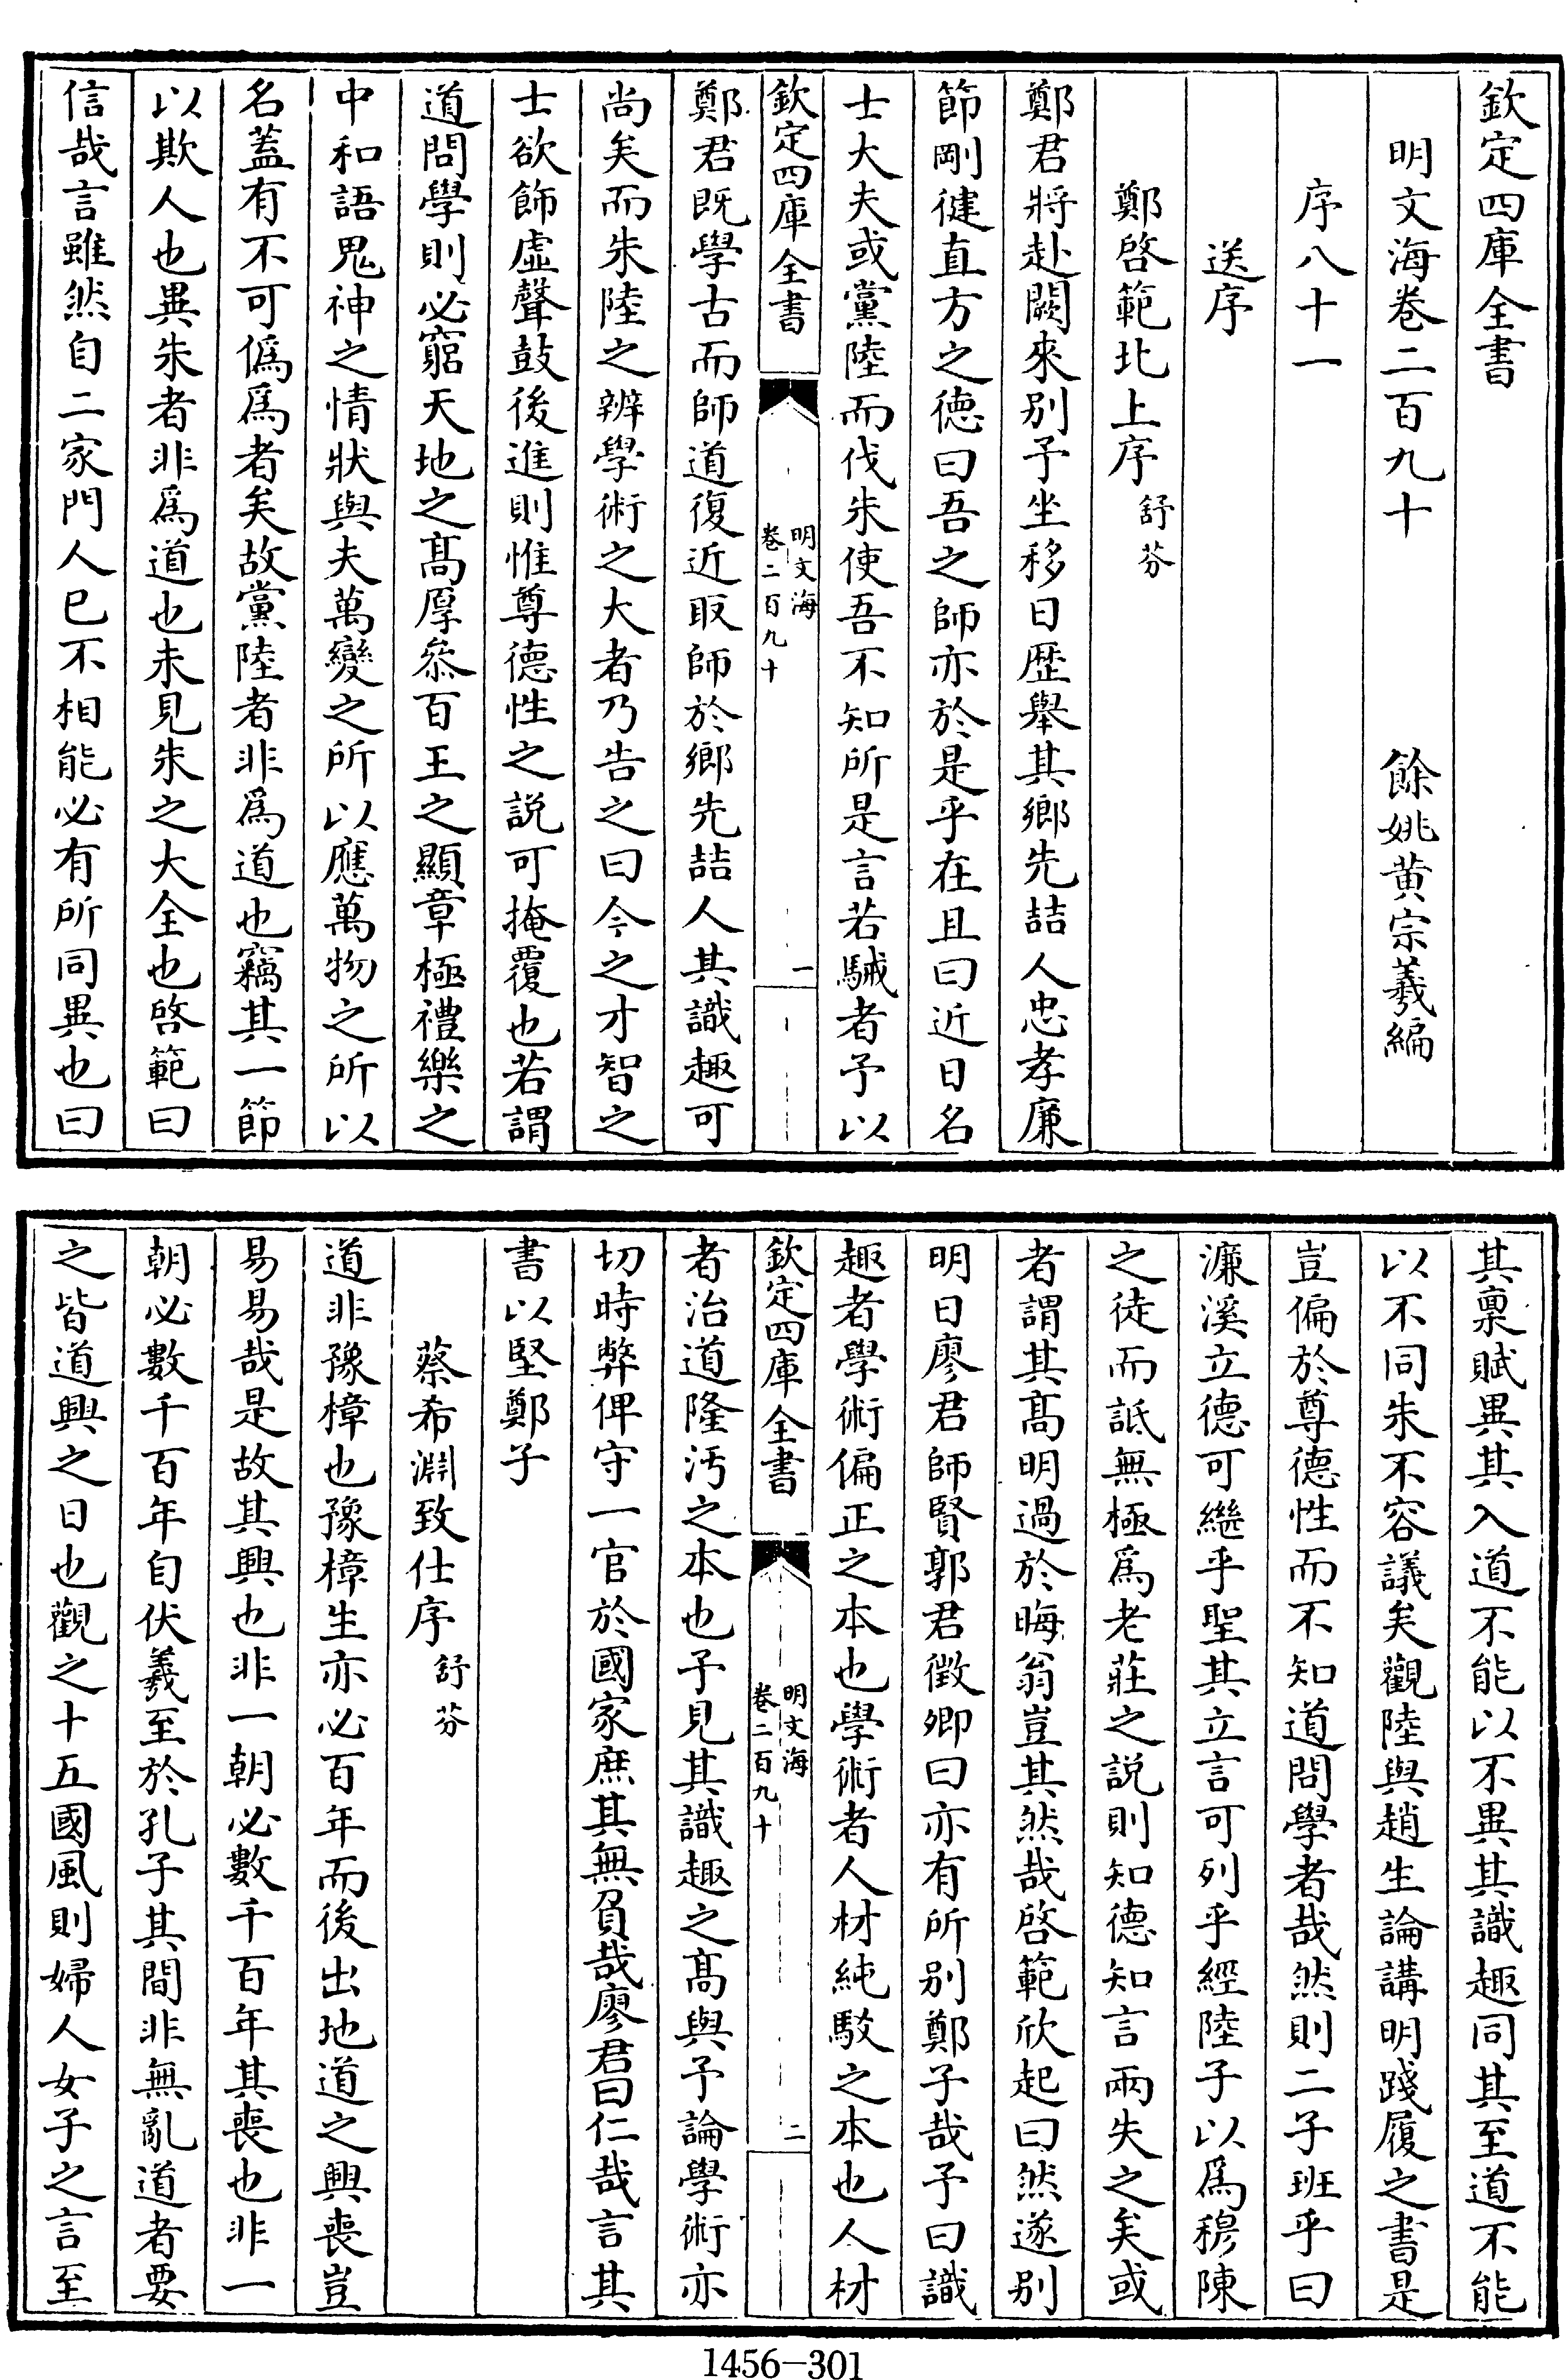 欽定四庫全書
明文海卷二百九十　　　　餘姚黄宗羲編
序八十一
送序
鄭啓範北上序舒芬
鄭君將赴闕來别予坐移日歴舉其鄉先喆人忠孝廉
節剛健直方之徳曰吾之師亦於是乎在且曰近日名
士大夫或黨陸而伐朱使吾不知所是言若駴者予以
欽定四庫全書　明文海　卷二百九十　一
鄭君既學古而師道復近取師於鄉先喆人其識趣可
尚矣而朱陸之辨學術之大者乃告之曰今之才智之
士欲飾虛聲鼓後進則惟尊德性之説可掩覆也若謂
道問學則必窮天地之髙厚叅百王之顯章極禮樂之
中和語鬼神之情狀與夫萬變之所以應萬物之所以
名蓋有不可僞爲者矣故黨陸者非爲道也竊其一節
以欺人也異朱者非爲道也未見朱之大全也啓範曰
信哉言雖然自二家門人已不相能必有所同異也曰
其稟賦異其入道不能以不異其識趣同其至道不能
以不同朱不容議矣觀陸與趙生論講明踐履之書是
豈偏於尊德性而不知道問學者哉然則二子班乎曰
濂溪立德可繼乎聖其立言可列乎經陸子以爲穆陳
之徒而詆無極爲老莊之説則知德知言兩失之矣或
者謂其髙明過於晦翁豈其然哉啓範欣起曰然遂别
明日廖君師賢郭君徴卿曰亦有所别鄭子哉予曰識
趣者學術偏正之本也學術者人材純駁之本也人材
欽定四庫全書　明文海　卷二百九十　二
者治道隆汚之本也予見其識趣之髙與予論學術亦
切時弊俾守一官於國家庶其無負哉廖君曰仁哉言其
書以堅鄭子
蔡希淵致仕序舒芬
道非豫樟也豫樟生亦必百年而後出地道之興喪豈
易易哉是故其興也非一朝必數千百年其喪也非一
朝必數千百年自伏羲至於孔子其間非無亂道者要
之皆道興之日也觀之十五國風則婦人女子之言至
1456-301